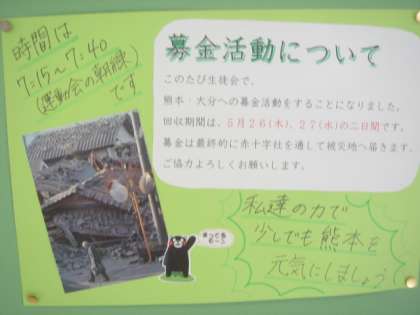 時間は
7:15～7:40
(運動会の朝練)
です
募金活動について
このたび生徒会で、
熊本・大分への募金活動をすることになりました。
回収期間は、5月26(木)、27(水)の二日間です。
募金は最終的に赤十字社を通して被災地へ届きます。
ご協力よろしくお願いします。
私達の力で
少しでも熊本を
元気にしましょう